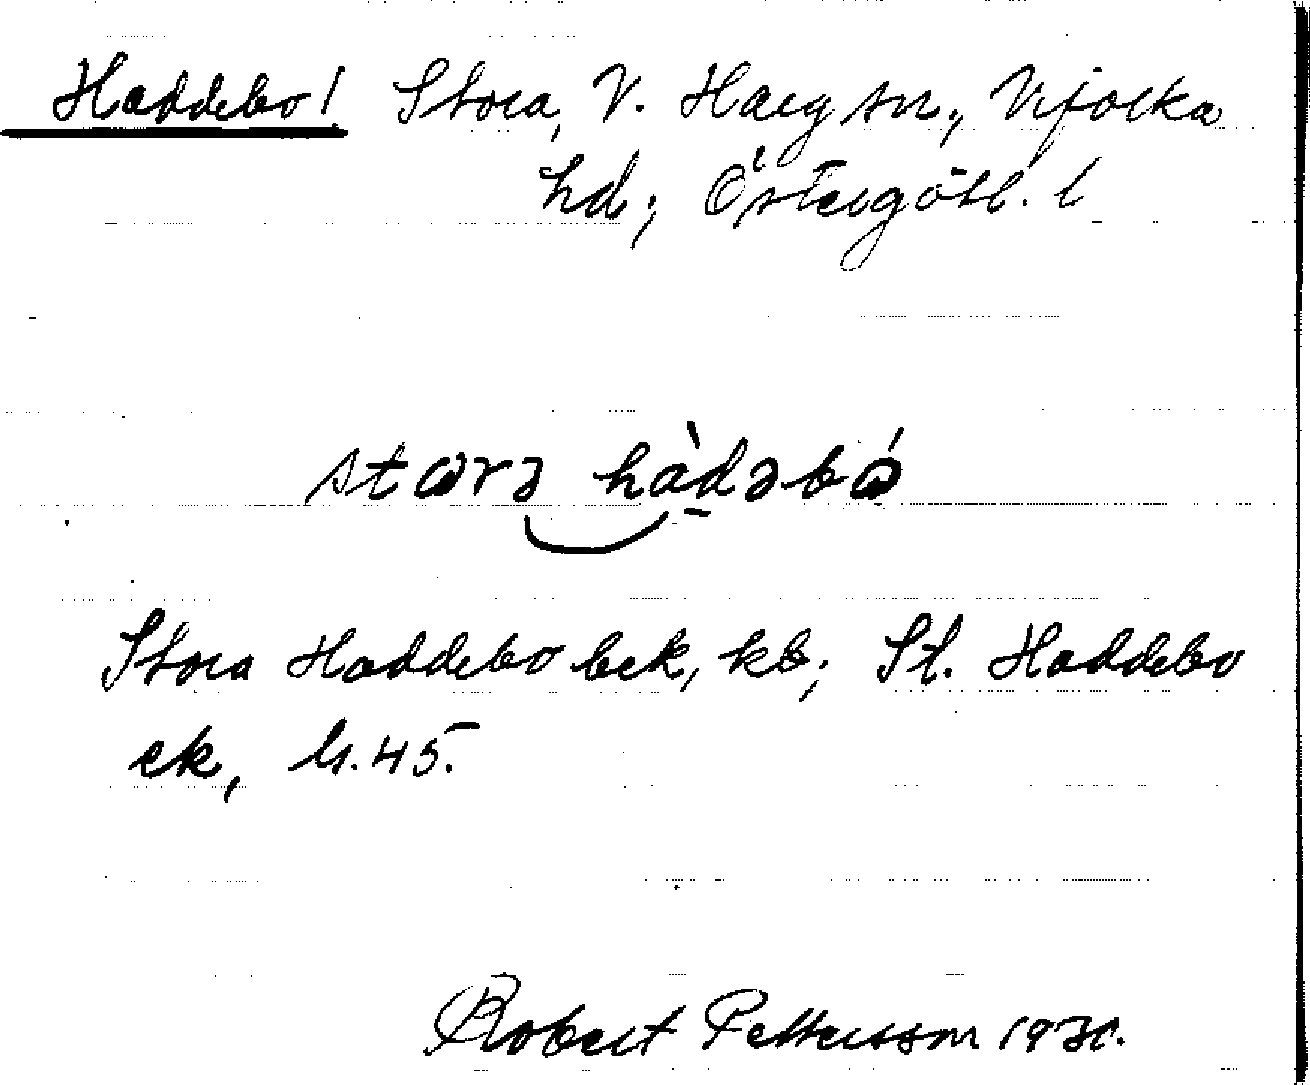 Haddebo! Stora, V. Harg sn., Vifolka
hd; Östergötl. l
stωrə hàdəbώ
Stora Haddebo bek, kb; St. Haddebo
ek, bl. 45.
Robert Pettersson 1931.